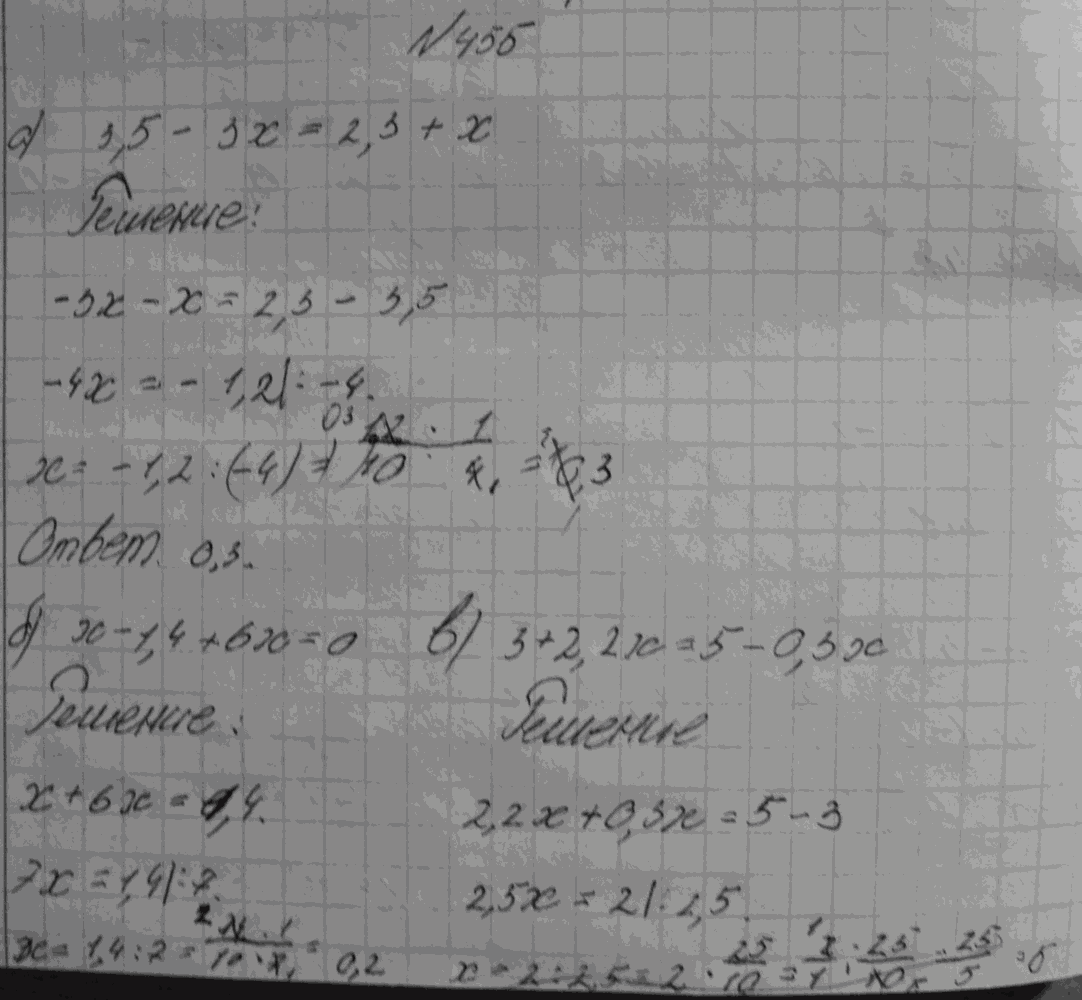 №456
а) 3,5 - 3x = 2,3 + x
Решение:
-3x - x = 2,3 - 3,5
-4x = - 1,2 | : -4.
x = -1,2 : (-4) = 12 · 1 / 10 · 4 = 0,3
Ответ. 0,3.
б) x - 1,4 + 6x = 0
Решение:
x + 6x = 1,4.
7x = 1,4 | : 7.
x = 1,4 : 7 = 14 · 1 / 10 · 7 = 0,2
в) 3 + 2,2x = 5 - 0,3x
Решение
2,2x + 0,3x = 5 - 3
2,5x = 2 | : 2,5.
x = 2 : 2,5 = 2 · 25/10 = 2 · 25 / 1 · 10 = 25/5 = 5